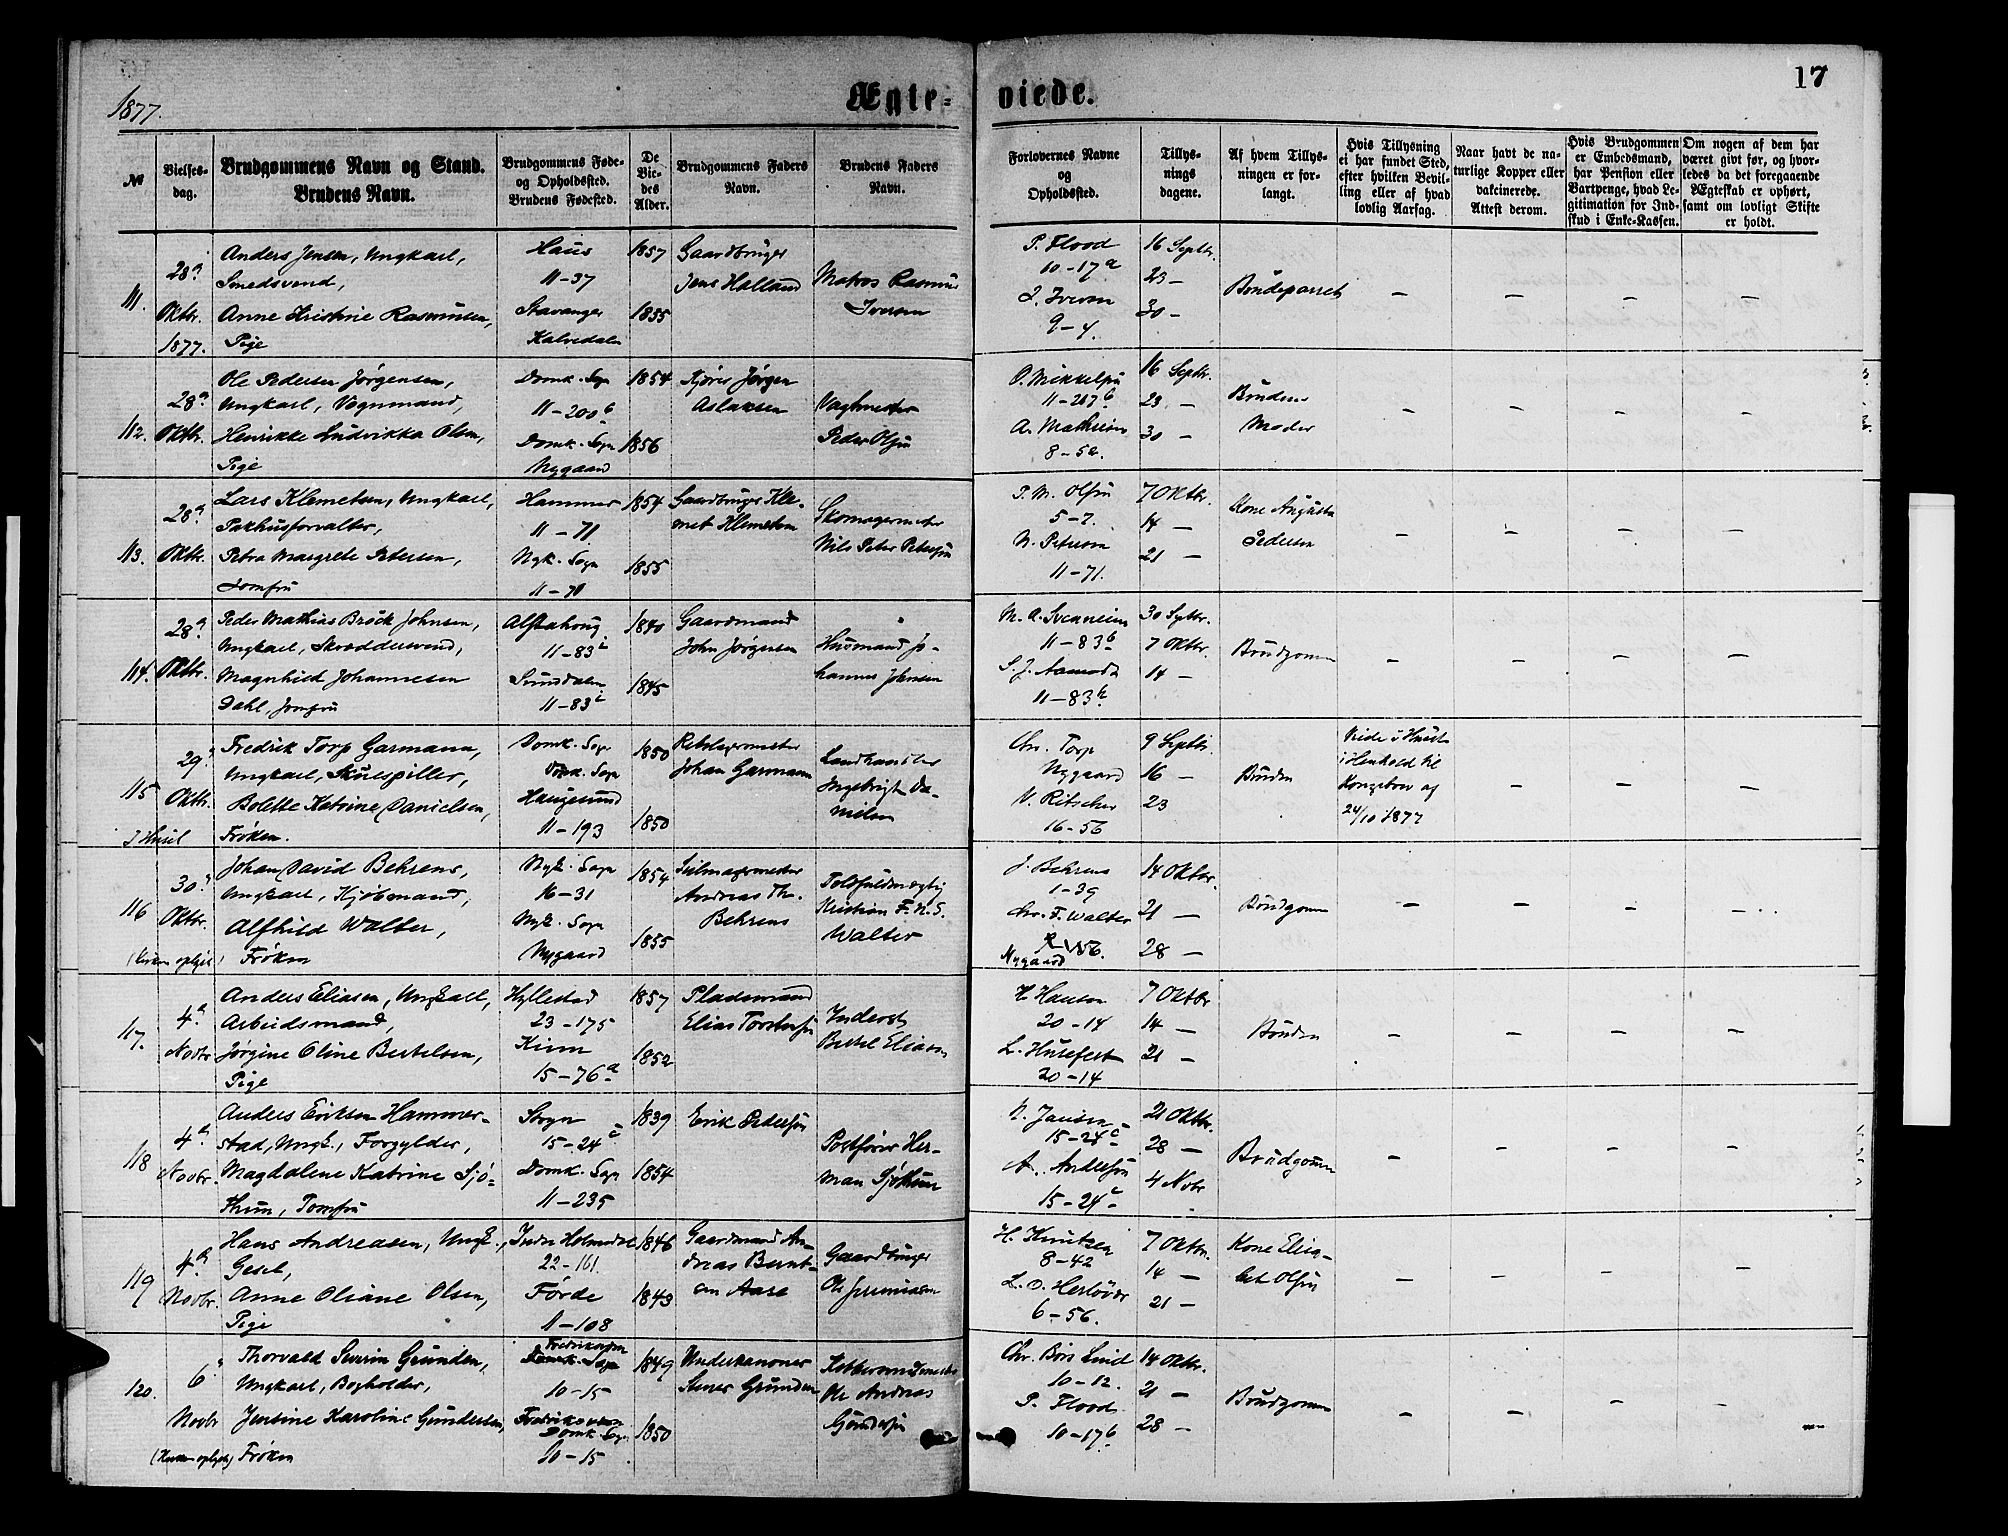 1877.
Ægte-
viede.
17
№
Vielses-
dag.
Brudgommens Navn og Stand.
Brudens Navn.
Brudgommens Føde-
og Opholdssted.
Brudens Fødested.
De
Vie-
des
Alder.
Brudgommens Faders
Navn.
Brudens Faders
Navn.
Forlovernes Navne
og
Opholdssted.
Tillys-
nings
dagene.
Af hvem Tillys-
ningen er for-
langt.
Hvis Tillysning
ei har fundet Sted,
efter hvilken Bevil-
ling eller af hvad
lovlig Aarsag.
Naar havt de na-
turlige Kopper eller
vakcinerede.
Attest derom.
Hvis Brudgommen
er Embedsmand,
har Pension eller
Vartpenge, hvad Le-
gitimation for Ind-
skud i Enke-Kassen.
Om nogen af dem har
været givt før, og hvor-
ledes da det foregaaende
Ægteskab er ophørt,
samt om lovligt Skifte
er holdt.
111.
28de
Oktbr.
1877.
Anders Jensen, Ungkarl,
Smedsvend,
Anne Kristine Rasmusen,
Pige
Haus
11-37
Stavanger
Kalvedalen
1857
1855
Gaardbruger
Jens Halland
Matros Rasmus
Iversen
P. Flood
10-17a
I. Iversen
9-4.
16 Septbr.
23 —
30 —
Brudeparret
— — — —
112.
28de
Oktbr.
Ole Pedersen Jørgensen,
Ungkarl, Vognmand,
Henrikke Ludvikka Olsen,
Pige
Domk. Sogn
11-200b
Domk. Sogn
Nygaard
1854
1856
Kjører Jørgen
Aslaksen
Vagtmester
Peder Olsen
O. Mikkelsen
11-207b
A. Mathiesen
8-52.
16 Septbr.
23 —
30 —
Brudens
Moder
— — — —
113.
28de
Oktbr.
Lars Klemetsen, Ungkarl,
Pakhusforvalter,
Petra Margrete Petersen,
Jomfru
Hammer
11-71
Nyk. Sogn
11-71
1854
1855
Gaardbruger Kle-
met Klemetsen
Skomagermester
Nils Peter Petersen
P. M. Olsen
5-7.
N. Petersen
11-71.
7 Oktbr.
14 —
21 —
Kone Augusta
Pedersen
— — — —
114.
28de
Oktbr.
Peder Mathias Brock Johnsen,
Ungkarl, Skræddersvend,
Magnhild Johannesen
Dahl, Jomfru
Alstahoug
11-83
Sunddalen
11-83
1840
1845
Gaardmand
John Jørgensen
Husmand Jo-
hannes Johnsen
11-83b
S. J. Aamodt
11-83b
30 Septbr.
7 Oktbr.
14 —
Brudgommen
— — — —
115
29de
Oktbr.
I Huset
Fredrik Torp Garmann,
Ungkarl, Skuespiller,
Bolette Katrine Danielsen,
Frøken.
Domk. Sogn
Haugesund
11-193
1850
1850
Rebslagermester
Johan Garmann
Landhandler
Ingebrigt Da-
nielsen
Chr. Torp
Nygaard
V. Ritscher
16-56
9 Septbr.
16 —
23
Bruden
Viede i Huset
i Henhold til
Kongebrev af
24/10 1877
— — —
116
30de
Oktbr.
(Kirken oplyst)
Johan David Behrens,
Ungkarl, Kjøbmand,
Alfhild Walter,
Frøken
Nyk. Sogn
16-31
Nyk. Sogn
Nygaard
1854
1855
Seilmagermester
Andreas Th.
Behrens
Toldfuldmægtig
Kristian F. N. S.
Walter
J. Behrens
1-39
Chr. F. Walter
Nygaard
14 Oktbr.
21 —
28 —
Brudgommen
— — — —
117.
4de
Novbr
Anders Eliasen, Ungkarl,
Arbeidsmand,
Jørgine Oline Bertelsen,
Pige
Hyllestad
23-175
Kinn
15-76a
1857
1852
Pladsmand
Elias Torstersen
Inderst
Bertel Eliasen
H. Hansen
20-14
L. Husefest
20-14
7 Oktbr
14 —
21 —
Bruden
— — — —
118
4de
Novbr.
Anders Eriksen Hammer-
stad, Ungk., Forgylder,
Magdalene Katrine Sjø-
thun, Jomfru
Sogn
15-24c
Domk. Sogn
11-235
1839
1854
Erik Pedersen
Postfører Her-
man Sjøthun
N. Jansen
15-24c
A. Andersen
15-24c
21 Oktbr.
28 —
4 Novbr
Brudgommen
— — — —
119
4de
Novbr.
Hans Andreasen, Ungk.,
Gesel,
Anne Oliane Olsen,
Pige
Indre Holmedal
22-161.
Førde
11-108
1846
1843
Gaardmand An-
dreas Bernt-
sen Aase
Gaardbruger
Ole Jeremiasen
H. Knutzen
8-42
6-56.
7 Oktbr.
14 —
21 —
Kone Elisa-
bet Olsen
— — — —
120.
6te
Novbr
(Kirken oplyst)
Thorvald Severin Grunden,
Ungkarl, Bogholder,
Jensine Karoline Gundersen,
Frøken
Fredrikvaern
Domk. Sogn
10-15
Fredriksværn
Domk. Sogn
10-15
1849
1850
Underkanoner
Stener Grunden
Kattunsmedmester
Ole Andreas
Gundersen
Chr. Børs Lind
10-12.
P. Flood
10-17b
14 Oktbr.
21 —
28 —
Brudgommen
— — — —